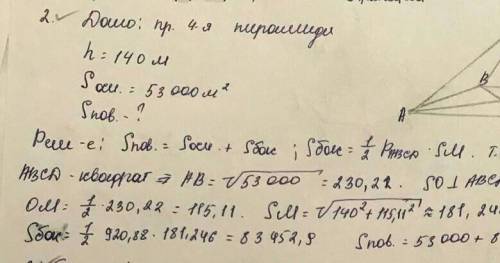 2. Дано: пр. 4-я пирамида
h = 140 м
Sосн. = 53 000 м²
Sпов. - ?
A
B
Реш-е: Sпов. = Sосн. + Sбок ; Sбок = 1/2 PABCD · SM . т.
ABCD - квадрат ⇒ AB = √53 000 = 230,22. SO ⊥ ABC
OM = 1/2 · 230,22 = 115,11. SM = √140² + 115,11² ≈ 181, 24
Sбок = 1/2 920,88 · 181,246 = 83 452,9 Sпов. = 53 000 + 8